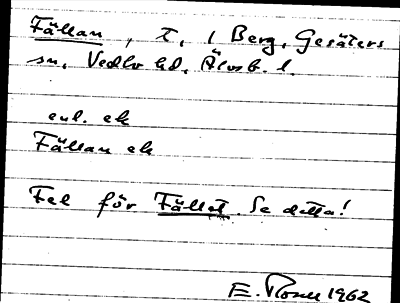 Fällan, t, i Berg, Gesäters
sn, Vedbo hd, Älvsb. l.
enl. ek
Fällan ek
Fel för Fället. Se detta!
E. Rosell 1962